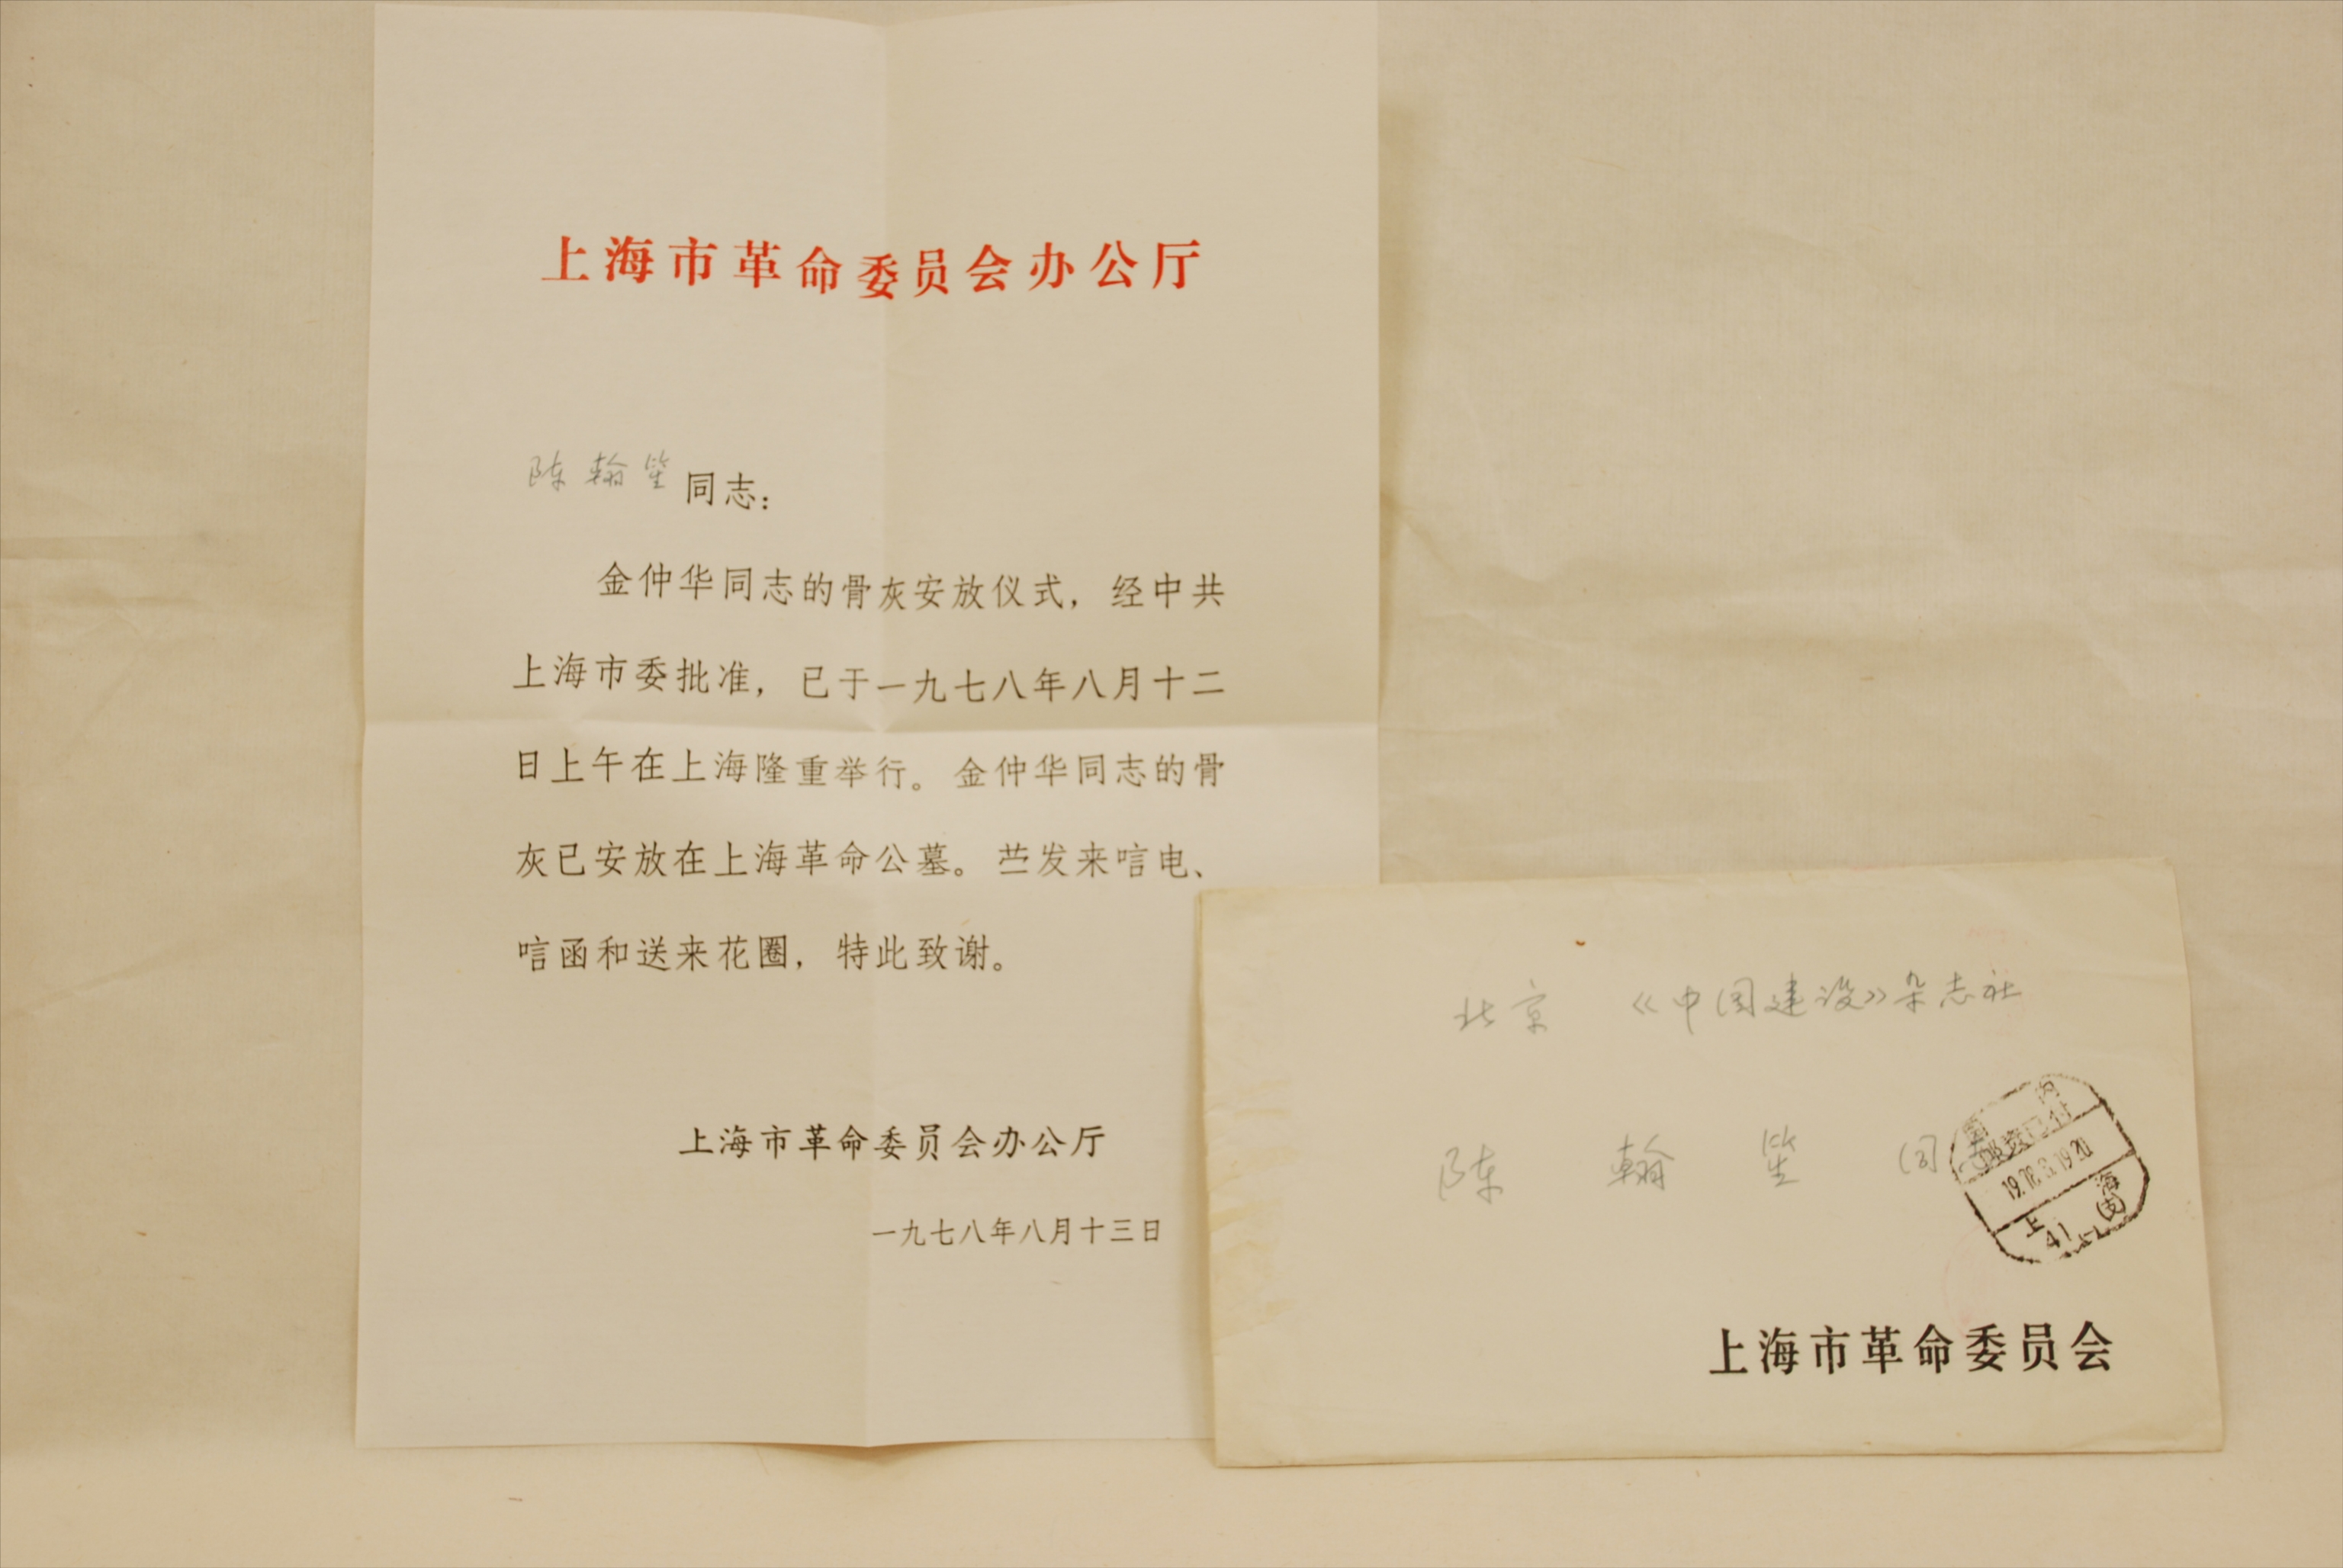 上海市革命委员会办公厅
陈翰笙同志：
金仲华同志的骨灰安放仪式，经中共
上海市委批准，已于一九七八年八月十二
日上午在上海隆重举行。金仲华同志的骨
灰已安放在上海革命公墓。发来唁电、
唁函和送来花圈，特此致谢。
上海市革命委员会办公厅
一九七八年八月十三日
北京 《中国建设》杂志社
陈 翰 笙 同
国内
邮资已付
上海
41
上海市革命委员会